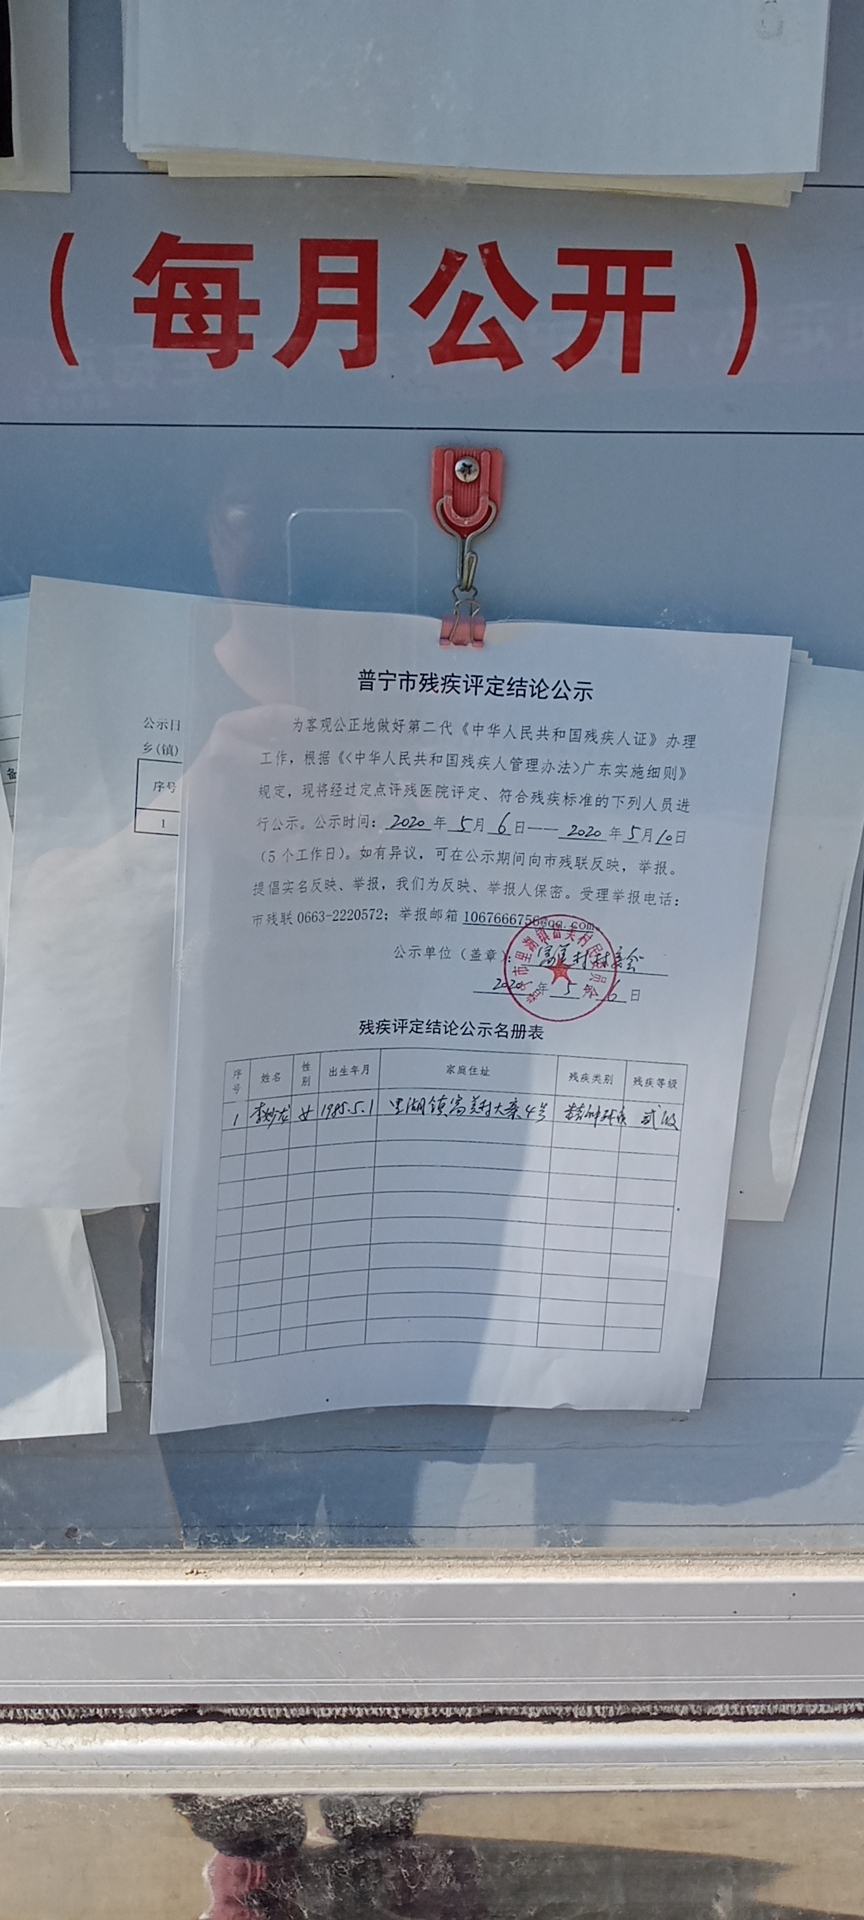 （每月公开）
公示日
乡(镇)
备
序号
1
普宁市残疾评定结论公示
为客观公正地做好第二代《中华人民共和国残疾人证》办理
工作，根据《<中华人民共和国残疾人管理办法>广东实施细则》
规定，现将经过定点评残医院评定、符合残疾标准的下列人员进
行公示。公示时间：2020年5月6日——2020年5月10日
（5个工作日）。如有异议，可在公示期间向市残联反映，举报。
提倡实名反映、举报，我们为反映、举报人保密。受理举报电话：
市残联0663-2220572；举报邮箱1067666756@qq.com。
公示单位（盖章）：富美村村委会
2020年5月6日
残疾评定结论公示名册表
序号 姓名 性别 出生年月 家庭住址 残疾类别 残疾等级
1 李妙龙 女 1985.5.1 里湖镇富美村大寨4号 精神残疾 贰级